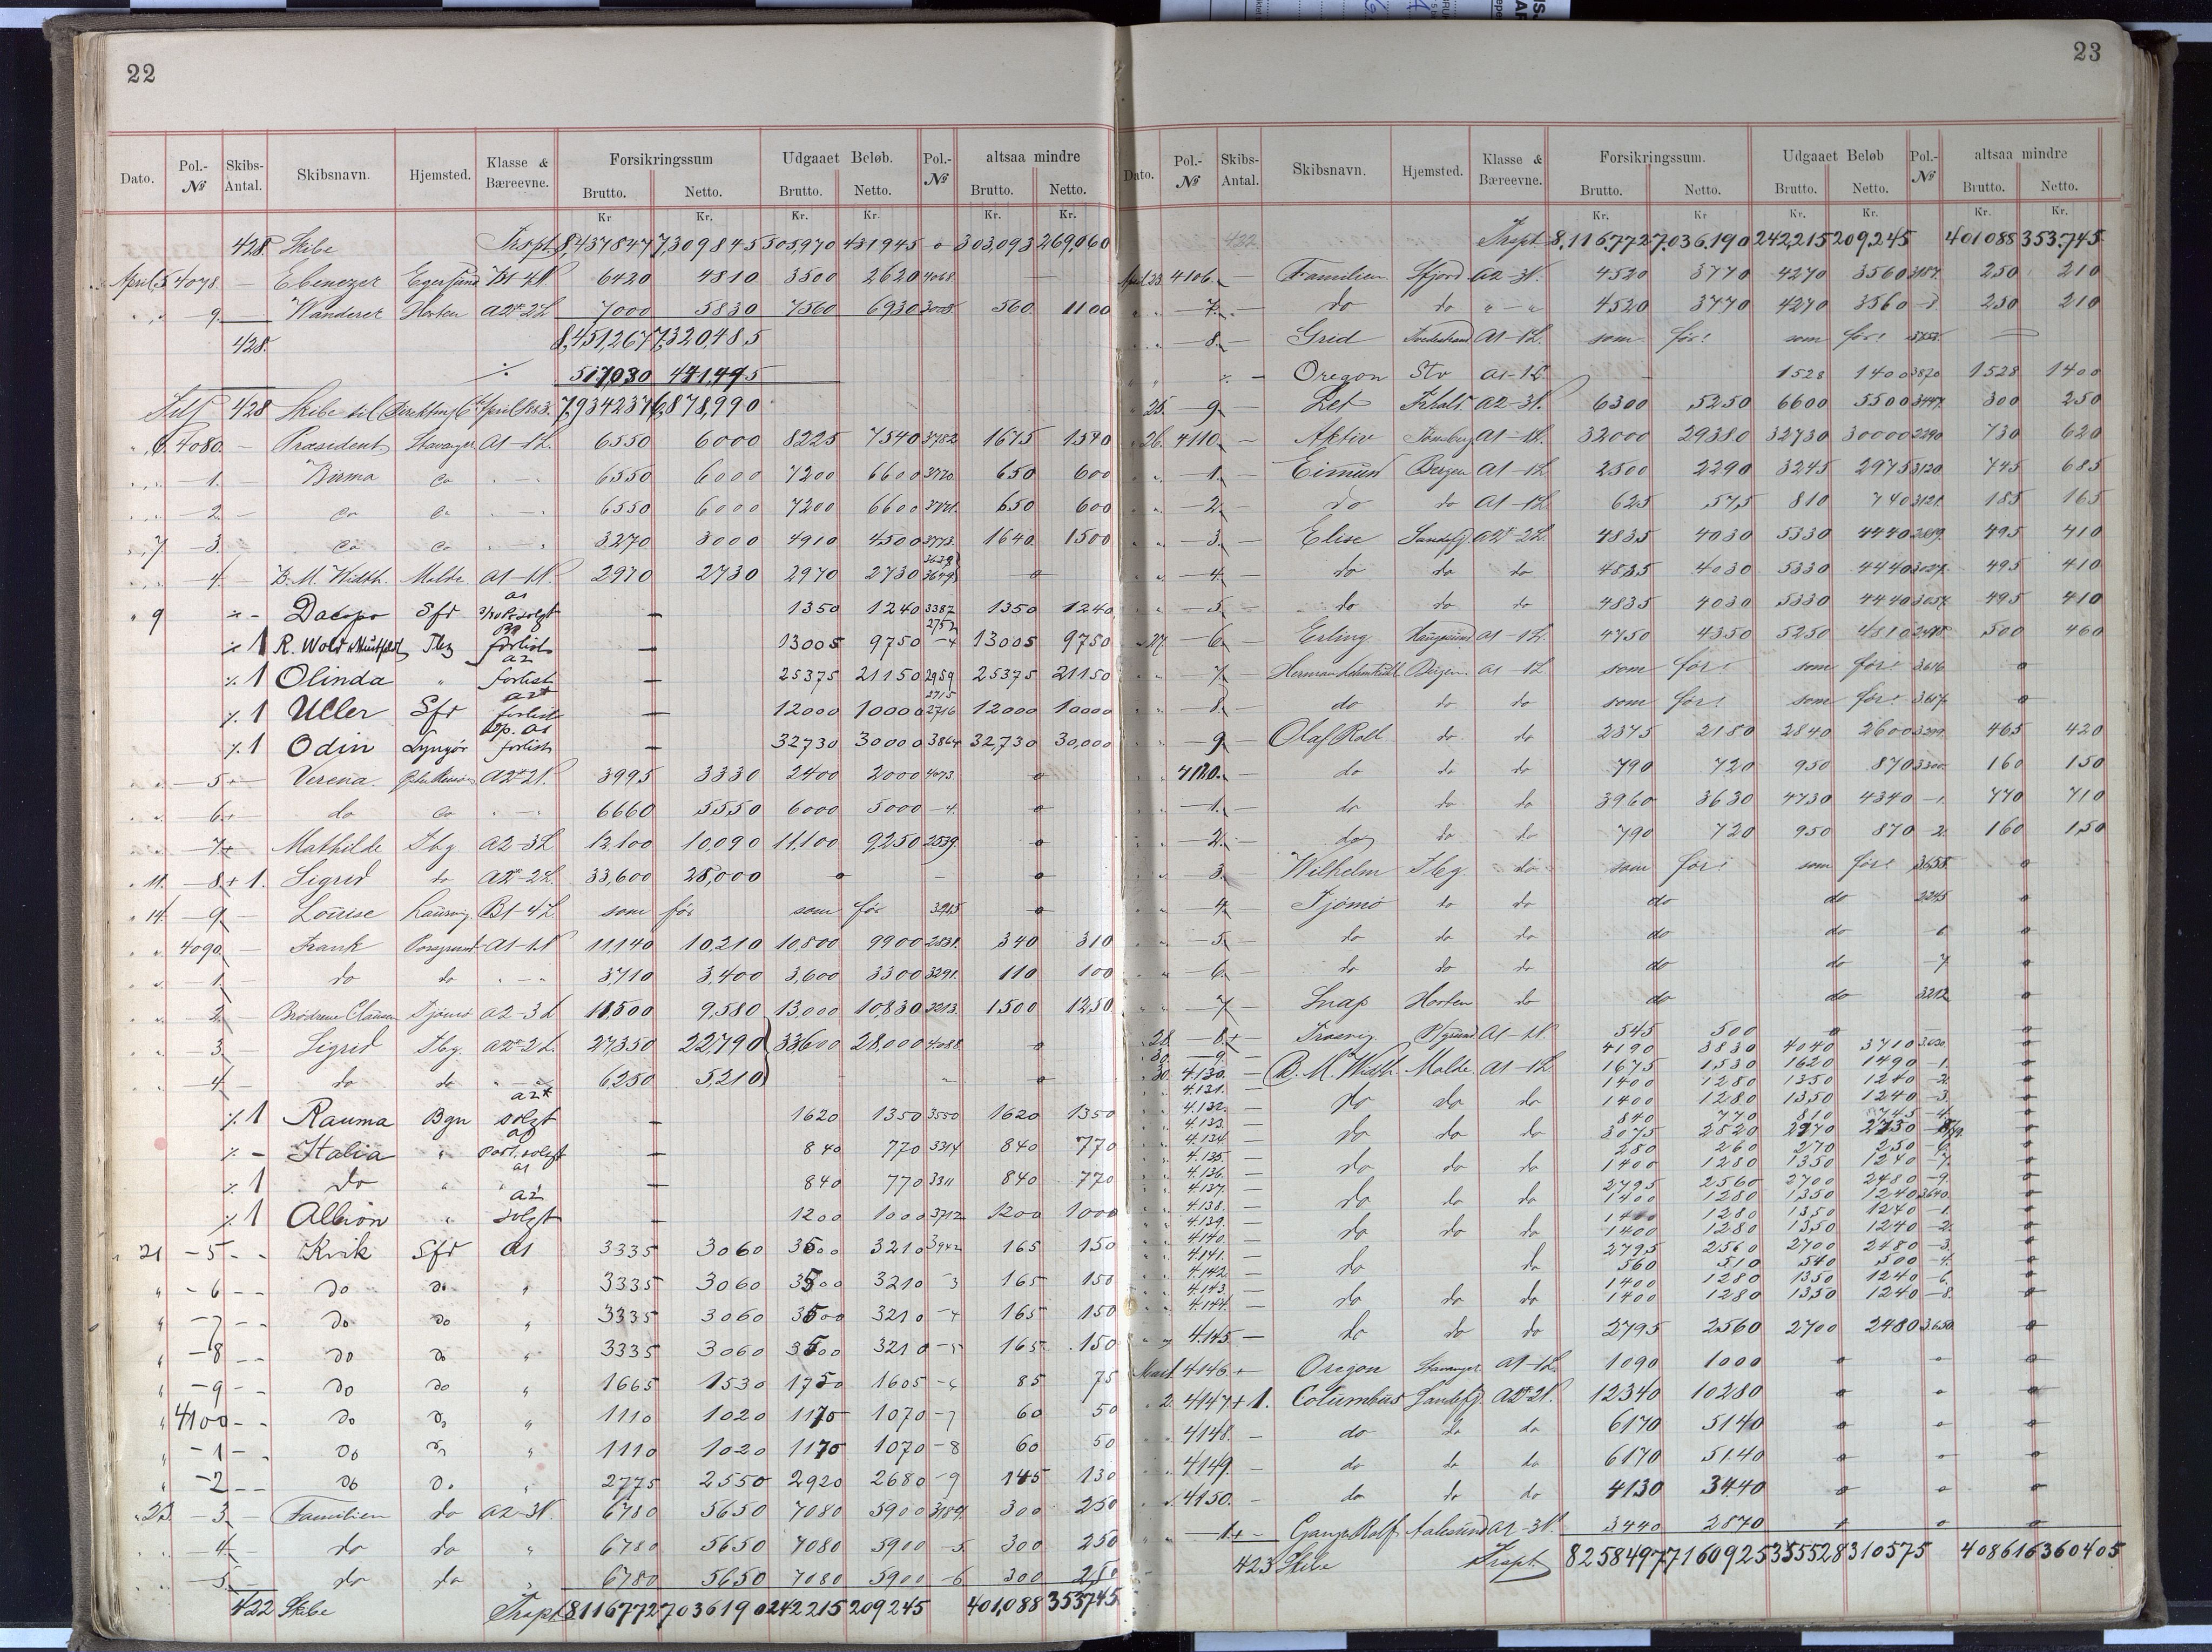 22
Dato. Pol.-№ Skibs-Antal. Skibsnavn. Hjemsted. Klasse & Bæreevne. Forsikringssum Brutto. Netto. Udgaaet Beløb. Brutto. Netto. Pol.-№ altsaa mindre Brutto. Netto.
Kr Kr. Kr. Kr. Kr. Kr.
428 Skibe Trspt 8,437847 7,309845 505,970 431945 303,093 269,060
April 5 4078. — Ebenezer Egersund B1-4N. 6420 4810 3500 2620 4068. —
" — 9. — Wanderer Horten A2*-2L 7000 5830 7560 6930 560 1100
428. 8,451,267 7,320,485
÷ 517,030 441,495
428 Skibe til Direktion 7,934237 6,878,990
" 6. 4080. — Præsident Stavanger A1-1L. 6550 6000 8225 7540 3782 1675 1540
" — 1. Birma do " 6550 6000 7200 6600 3770. 650 600
" — 2. — do do " 6550 6000 7200 6600 3771. 650 600
" 7 — 3. do do " 3270 3000 4910 4500 3773. 1640 1500
" — 4. B. M. Width. Molde A1-1N. 2970 2730 2970 2730 3649 o
" 9 ÷ - Dacapo Sfd A1 solgt — 1350 1240 3387 1350 1240
÷ 1 R. Wold Huitfeldt Tbg forlist — 13005 9750 2752 -4 13005 9750
÷ 1 Olinda " A2 forlist — 25375 21150 2989 25375 21150
÷ 1 Uller Sfd A2* forlist — 12000 10000 2715 2716 12000 10000
÷ 1 Odin Lyngör A1 forlist — 32730 30000 3864 32,730 30,000
" — 5 + Verena. A2*-2N. 3995 3330 2400 2000 4073. o
" — 6 + do do " 6660 5550 6000 5000 -4. o
" — 7 + Mathilde Tbg A2-3L 12,100 10,090 11,100 9,250 2539 o
" 11. — 8 + 1. Sigrid do A2*-2L. 33,600 28,000 o — o
" 14. — 9. — Louise Laurvig. B1-4L som før som før 3215 o
" 4090. — Frank Porsgrund A1-1N 11,140 10,210 10,800 9900 2831. 340 310
" — 1. do do " 3,710 3,400 3,600 3300 3291. 110 100
" — 2. — Brödrene Clausen Tjömö A2-3L 11,500 9,580 13,000 10,830 3213. 1500 1250
" — 3. Sigrid Tbg. A2*-2L. 27,350 22,790 33,600 28,000 4088. o
" — 4. do do " 6250 5,210 — o
÷ 1 Rauma Bgn A2* solgt — 1620 1350 3550 1620 1350
÷ - Italia " A1 part. solgt — 840 770 3314 840 770
÷ 1 do " A1 — 840 770 3311 840 770
÷ 1 Albion " A2 solgt — 1200 1000 3712 1200 1000
" 21 - 5 - - Kvik Sfd A1 3335 3060 3500 3210 3942 165 150
" - 6 - - do do " 3335 3060 3500 3210 -3 165 150
" - 7 - - do do " 3335 3060 3500 3210 -4 165 150
" - 8 - - do do " 3335 3060 3500 3210 -5 165 150
" - 9 - - do do " 1665 1530 1750 1605 -6 85 75
" 4100 - - do do " 1110 1020 1175 1070 -7 60 50
" - 1 - do do " 1110 1020 1175 1070 -8 60 50
" - 2 - - do do " 2775 2550 2920 2680 -9 145 130
" 23. — 3. — Familien do A2-3N. 6780 5650 7080 5900 3184 300 250
" — 4. — do do " 6780 5650 7080 5900 -5. 300 250
" — 5. — do do " 6780 5650 7080 5900 -6 300 250
422 Skibe Trspt 8116772 7036190 242215 209245 401,088 353745
23
Dato. Pol.-№ Skibs-Antal. Skibsnavn. Hjemsted. Klasse & Bæreevne. Forsikringssum. Brutto. Netto. Udgaaet Beløb Brutto. Netto. Pol.-№ altsaa mindre Brutto. Netto.
Kr. Kr. Kr. Kr. Kr. Kr.
422 Trspt. 8,116,772 7,036,190 242,215 209,245 401088 353,745
April 23. 4106. — Familien Sfjord A2-3N. 4520 3770 4270 3560 3187. 250 210
" — 7. do do " - " 4520 3770 4270 3560 -8. 250 210
" — 8. — Grid Tvedestrand A1-1L. som før! som før! —
" ÷ — Oregon Stv A1-1L. — 1528 1400 3820 1528 1400
" 25. — 9. A2-3N. 6300 5250 6600 5500 3147. 300 250
" 26. 4110. — Aktiv Tönsberg A1-1L. 32000 29380 32730 30000 2290 730 620
" — 1. Eimund Bergen A1-1L 2500 2290 3245 2975 3120. 745 685
" — 2. do do A1-1L 625 575 810 740 3121. 185 165
" — 3. — Elise Sandefj. A2*-2L. 4835 4030 5330 4440 495 410
" — 4. — do do do 4835 4030 5330 4440 3027. 495 410
" — 5. do do do 4835 4030 5330 4440 3057. 495 410
" 27. — 6. — Erling. Haugesund A1-1L. 4750 4350 5250 4810 500 460
" — 7. Herman Lehmkuhl Bergen. A1-1L som før! som før! 3616 o
" — 8. do do do som før! som før! 3617. o
" — 9. Olaf Roll do do 2375 2180 2840 2600 465 420
" 4120. — do do do 790 720 950 870 3300. 160 150
" — 1. — do do do 3960 3630 4730 4340 -1. 770 710
" — 2. do do do 790 720 950 870 2. 160 150
" 3. — Wilhelm Tbg. do som før! som før! 3658. o
" — 4. — Tjömö do do do do 2245 o
" — 5. — do do do do do -6 o
" — 6. — do do do do do -7 o
" — 7. — Snap Horten do do do 3212 o
28. — 8. + A1-1N. 545 500 o — o
30. — 9. — 4190 3830 4040 3710 3630. o
30. 4.130. — B. M. Width Molde A1-1L 1675 1530 1620 1490 -1. o
4.131. 1400 1280 1350 1240 -2. o
4.132. — do do do 1400 1280 1350 1240 -3. o
4.133. 840 770 810 745 -4. o
4.134. — do do do 3075 2820 2970 2730 o
4.135. 280 260 270 250 -6. o
4.136. — do do do 1400 1280 1350 1240 -7. o
4.137. 2795 2560 2700 2480 -9. o
4.138. — do do do 1400 1280 1350 1240 3640. o
4.139. 1400 1280 1350 1240 -1. o
4140. — do do do 1400 1280 1350 1240 -2. o
4.141. 2795 2560 2700 2480 -3. o
4.142. — do do 560 510 540 500 -4. o
4.143. 1400 1280 1350 1240 -6. o
4.144. — do do do 1400 1280 1350 1240 -8. o
4.145. — do do do 2795 2560 2700 2480 3.650. o
4146. + Oregon Stavanger A1-1L. 1090 1000 o o o
2. 4147 + 1. Columbus Sandefj. A2*-2N. 12340 10280 o o o
4148. — do do do 6170 5140 o o o
4149. — do do do 6170 5140 o o o
4150. — do do do 4130 3440 o o o
— 1. + — Ganger Rolf Aalesund A2-3N. 3440 2870 o o o
423 Skibe Trspt 8258497 7160925 355528 310575 408616 360405